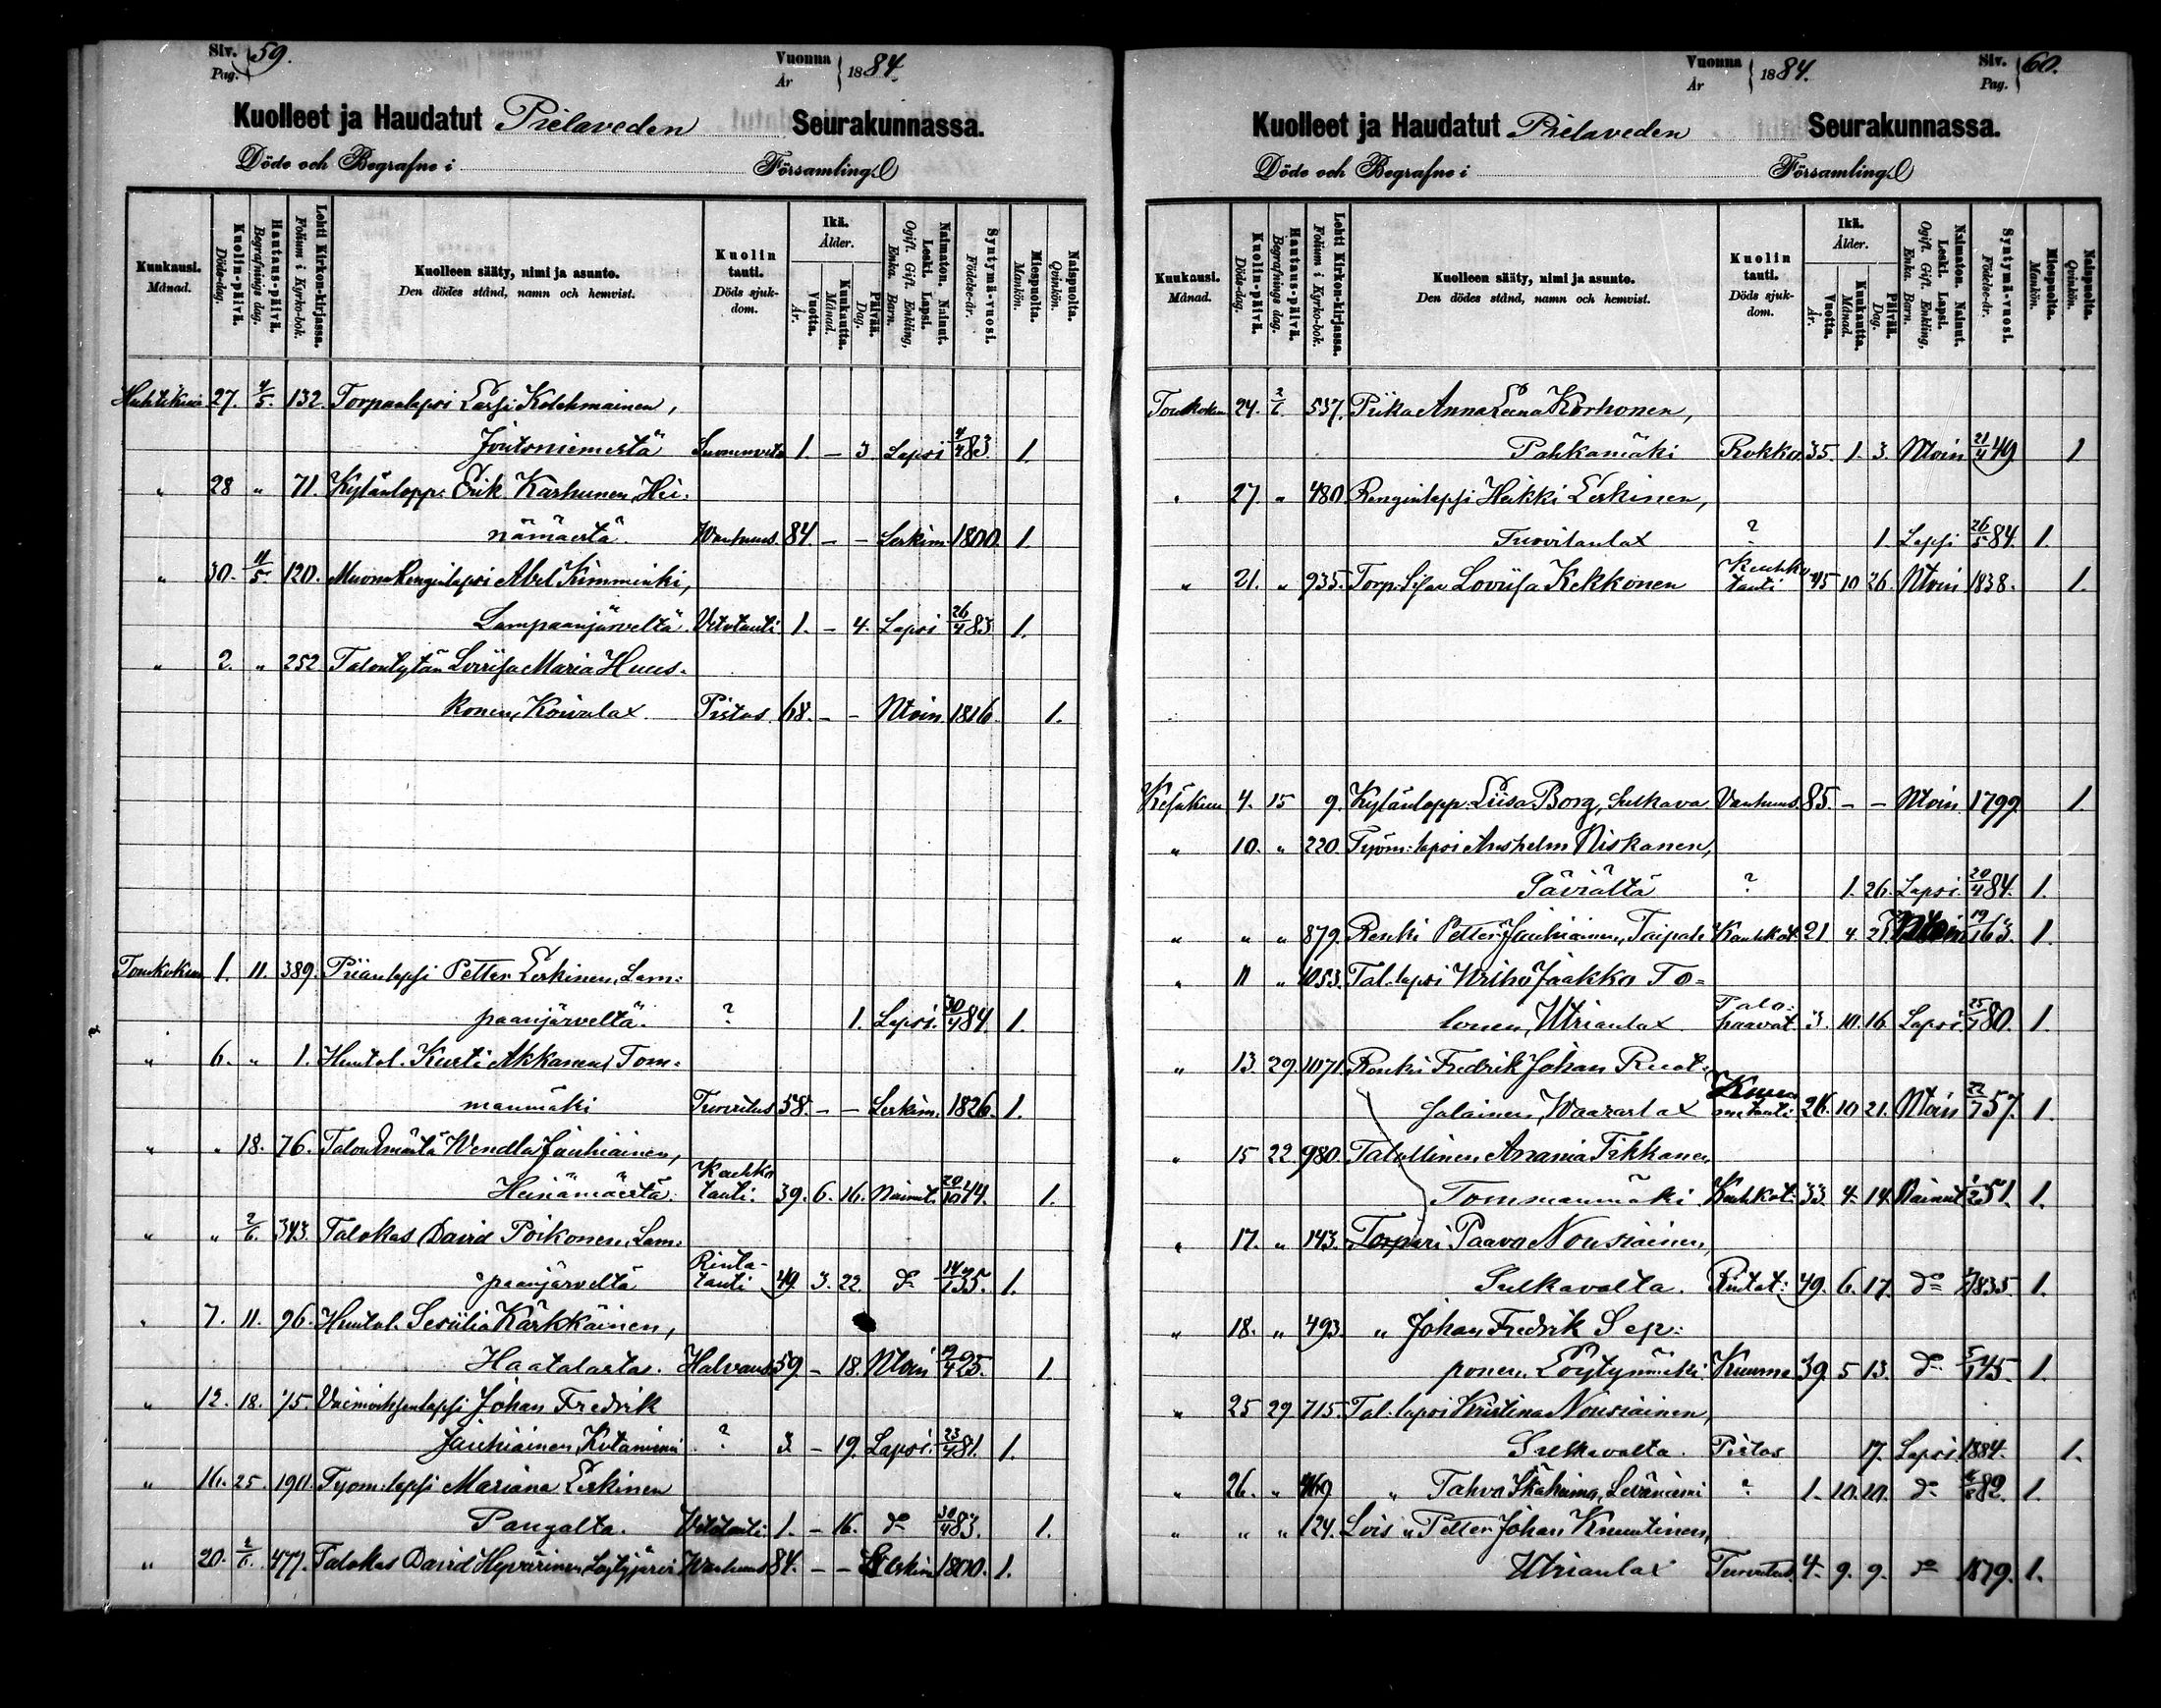 Siv. Pag. 59.
Vuonna År 1884.
Kuolleet ja Haudatut Pielaveden Seurakunnassa.
Döde och Begrafne i Församling
Kuukausi. Månad.
Kuolin-päivä. Döds-dag.
Hautaus-päivä. Begrafnings dag.
Lehti Kirkon-kirjassa. Folium i Kyrko-bok.
Kuolleen sääty, nimi ja asunto. Den dödes stånd, namn och hemvist.
Kuolin tauti. Döds sjukdom.
Ikä. Ålder.
Vuotta. År.
Kuukautta. Månad.
Päivää. Dag.
Naimaton. Nainut. Leski. Lapsi. Ogift. Gift. Enkling, Enka. Barn.
Syntymä-vuosi. Födelse-år.
Miespuolta. Mankön.
Naispuolta. Qvinkön.
Huhtikuu 27. 4/5. 132 Torpanlapsi Lassi Kolehmainen,
Joutsniemestä 1. – 3. Lapsi 4/4 83. 1.
" 28 " 71. Kylänlopp: Erik Karhunen, Hei-
nämäestä Wanhuus 84. – – Leskim. 1800. 1.
" 30. 11/5. 120. Muona Renginlapsi Abel Kumminki,
Lampaanjärveltä. Vetotauti 1. – 4. Lapsi 26/4 83. 1.
" 2. " 252 Talontytär Lovisa Maria Huus-
konen, Koivulax. Pistos 68. – – Ntoin 1816. 1.
Toukokuu 1. 11. 389. Piianlapsi Petter Leskinen, Lam-
paanjärveltä. ? 1. Lapsi. 30/4 84. 1.
" 6. " 1. Huutol. Kusti Akkanen, Tom-
manmäki Turvotus 58. – – Leskim. 1826. 1.
" " 18. 76. Talonemäntä Wendla Jauhiainen,
Heinämäestä. Keuhko tauti. 39. 6. 16. Nainut. 20/10 44. 1.
" " 2/6. 343. Talokas David Poikonen, Lam-
paanjärveltä Rinta-tauti 49 3. 22. do 14/1 35. 1.
" 7. 11. 96. Huutol. Sesilia Kärkkäinen,
Haatalasta. Halvaus 59. – 18. Ntoin 19/4 25. 1.
" 12. 18. 75. Johan Fredrik
Jauhiainen, Kotaniemi ? 3. – 19. Lapsi. 23/4 81. 1.
" 16. 25. 190. Työm: lapsi Mariana Leskinen
Pangalta. Vetotauti 1. – 16. do 30/4 83. 1.
" 20. 2/6. 477. Talokas David Hyvärinen, Löytyjärvi Wanhuus 84. – – Leskim 1800. 1.
Vuonna År 1884.
Siv. Pag. 60.
Kuolleet ja Haudatut Pielaveden Seurakunnassa.
Döde och Begrafne i Församling
Kuukausi. Månad.
Kuolin-päivä. Döds-dag.
Hautaus-päivä. Begrafnings dag.
Lehti Kirkon-kirjassa. Folium i Kyrko-bok.
Kuolleen sääty, nimi ja asunto. Den dödes stånd, namn och hemvist.
Kuolin tauti. Döds sjukdom.
Ikä. Ålder.
Vuotta. År.
Kuukautta. Månad.
Päivää. Dag.
Naimaton. Nainut. Leski. Lapsi. Ogift. Gift. Enkling, Enka. Barn.
Syntymä-vuosi. Födelse-år.
Miespuolta. Mankön.
Naispuolta. Qvinkön.
Toukokuu 24. 2/6. 537. Piika Anna Leena Korhonen,
Pahkamäki Rokko 35. 1. 3. Ntoin 21/4 49 1
" 27. " 480. Renginlapsi Heikki Leskinen,
Tuovilanlax ? 1. Lapsi 26/5 84. 1.
" 21. " 935. Torp. Sisar Loviisa Kekkonen Keuhko tauti 45 10 26. Ntoin 1838. 1.
Kesäkuu 4. 15 9. Kylänlopp. Liisa Borg, Sulkava Vanhuus. 85. – – Ntoin 1799. 1.
" 10. " 220. Työm: lapsi Anshelm Niskanen,
Säviältä ? 1. 26. Lapsi. 20/4 84. 1.
" " " 879. Renki Petter Jauhiainen, Taipale Keuhkot. 21 4. 21. Ntoin 19/1 63. 1.
" 11 " 1053. Tal. lapsi Wriho Jaakko To-
lonen, Utrianlax. Palo-haavat 3. 10. 16. Lapsi. 25/7 80. 1.
" 13 29. 1071. Renki Fredrik Johan Ruot-
salainen, Waaraslax 26. 10. 21. Ntoin 22/7 57. 1.
" 15 22. 980. Talollinen Anania Tikkanen,
Tommanmäki Keuhkot: 33. 4. 14. Nainut 1/2 51. 1.
" 17. " 143. Torpari Paavo Nousiainen,
Sulkavalta. Rintat: 49. 6. 17. do 1835. 1.
" 18. " 493. " Johan Fredrik Sep-
ponen, Löytynmäki. Kuume 39. 5 13. do 5/1 45. 1.
" 25 29. 715. Tal. lapsi Kristina Nousiainen,
Sulkavalta. Pistos 17. Lapsi 1884. 1.
" 26. " 469 " Tahvo Levänniemi ? 1. 10. 10. do 82. 1.
" " " 124. Lois " Petter Johan Knuutinen,
Utrianlax Turvotus. 4. 9. 9. do 1879. 1.